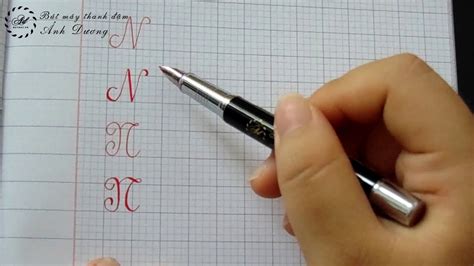 Bút máy thanh đậm
Ánh Dương
N
N
N
N